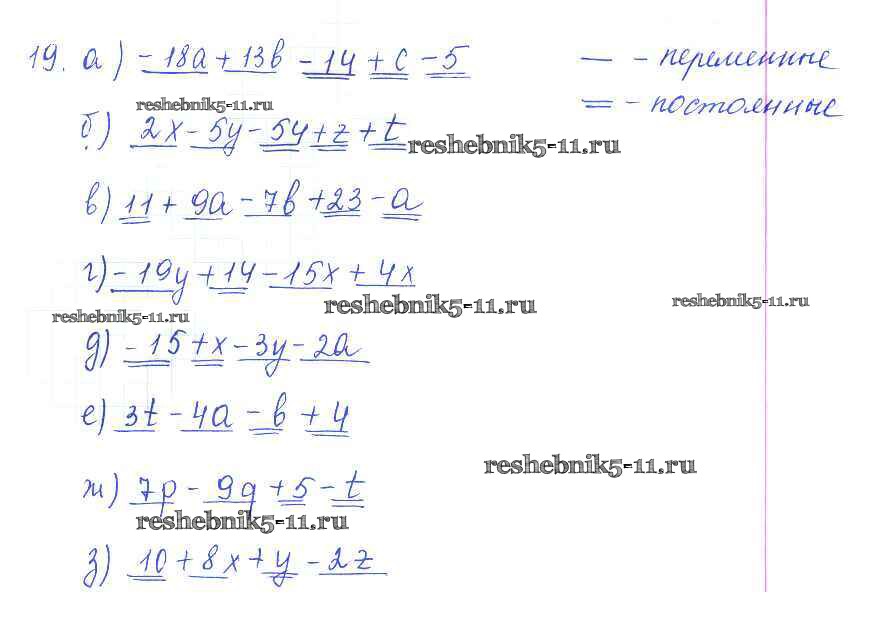 19. а) -18a + 13b - 14 + c - 5 — - переменные
= - постоянные
reshebnik5-11.ru
б) 2x - 5y - 54 + z + t
reshebnik5-11.ru
в) 11 + 9a - 7b + 23 - a
г) -19y + 14 - 15x + 4x
reshebnik5-11.ru
reshebnik5-11.ru
reshebnik5-11.ru
д) -15 + x - 3y - 2a
е) 3t - 4a - b + 4
reshebnik5-11.ru
ж) 7p - 9q + 5 - t
reshebnik5-11.ru
з) 10 + 8x + y - 2z